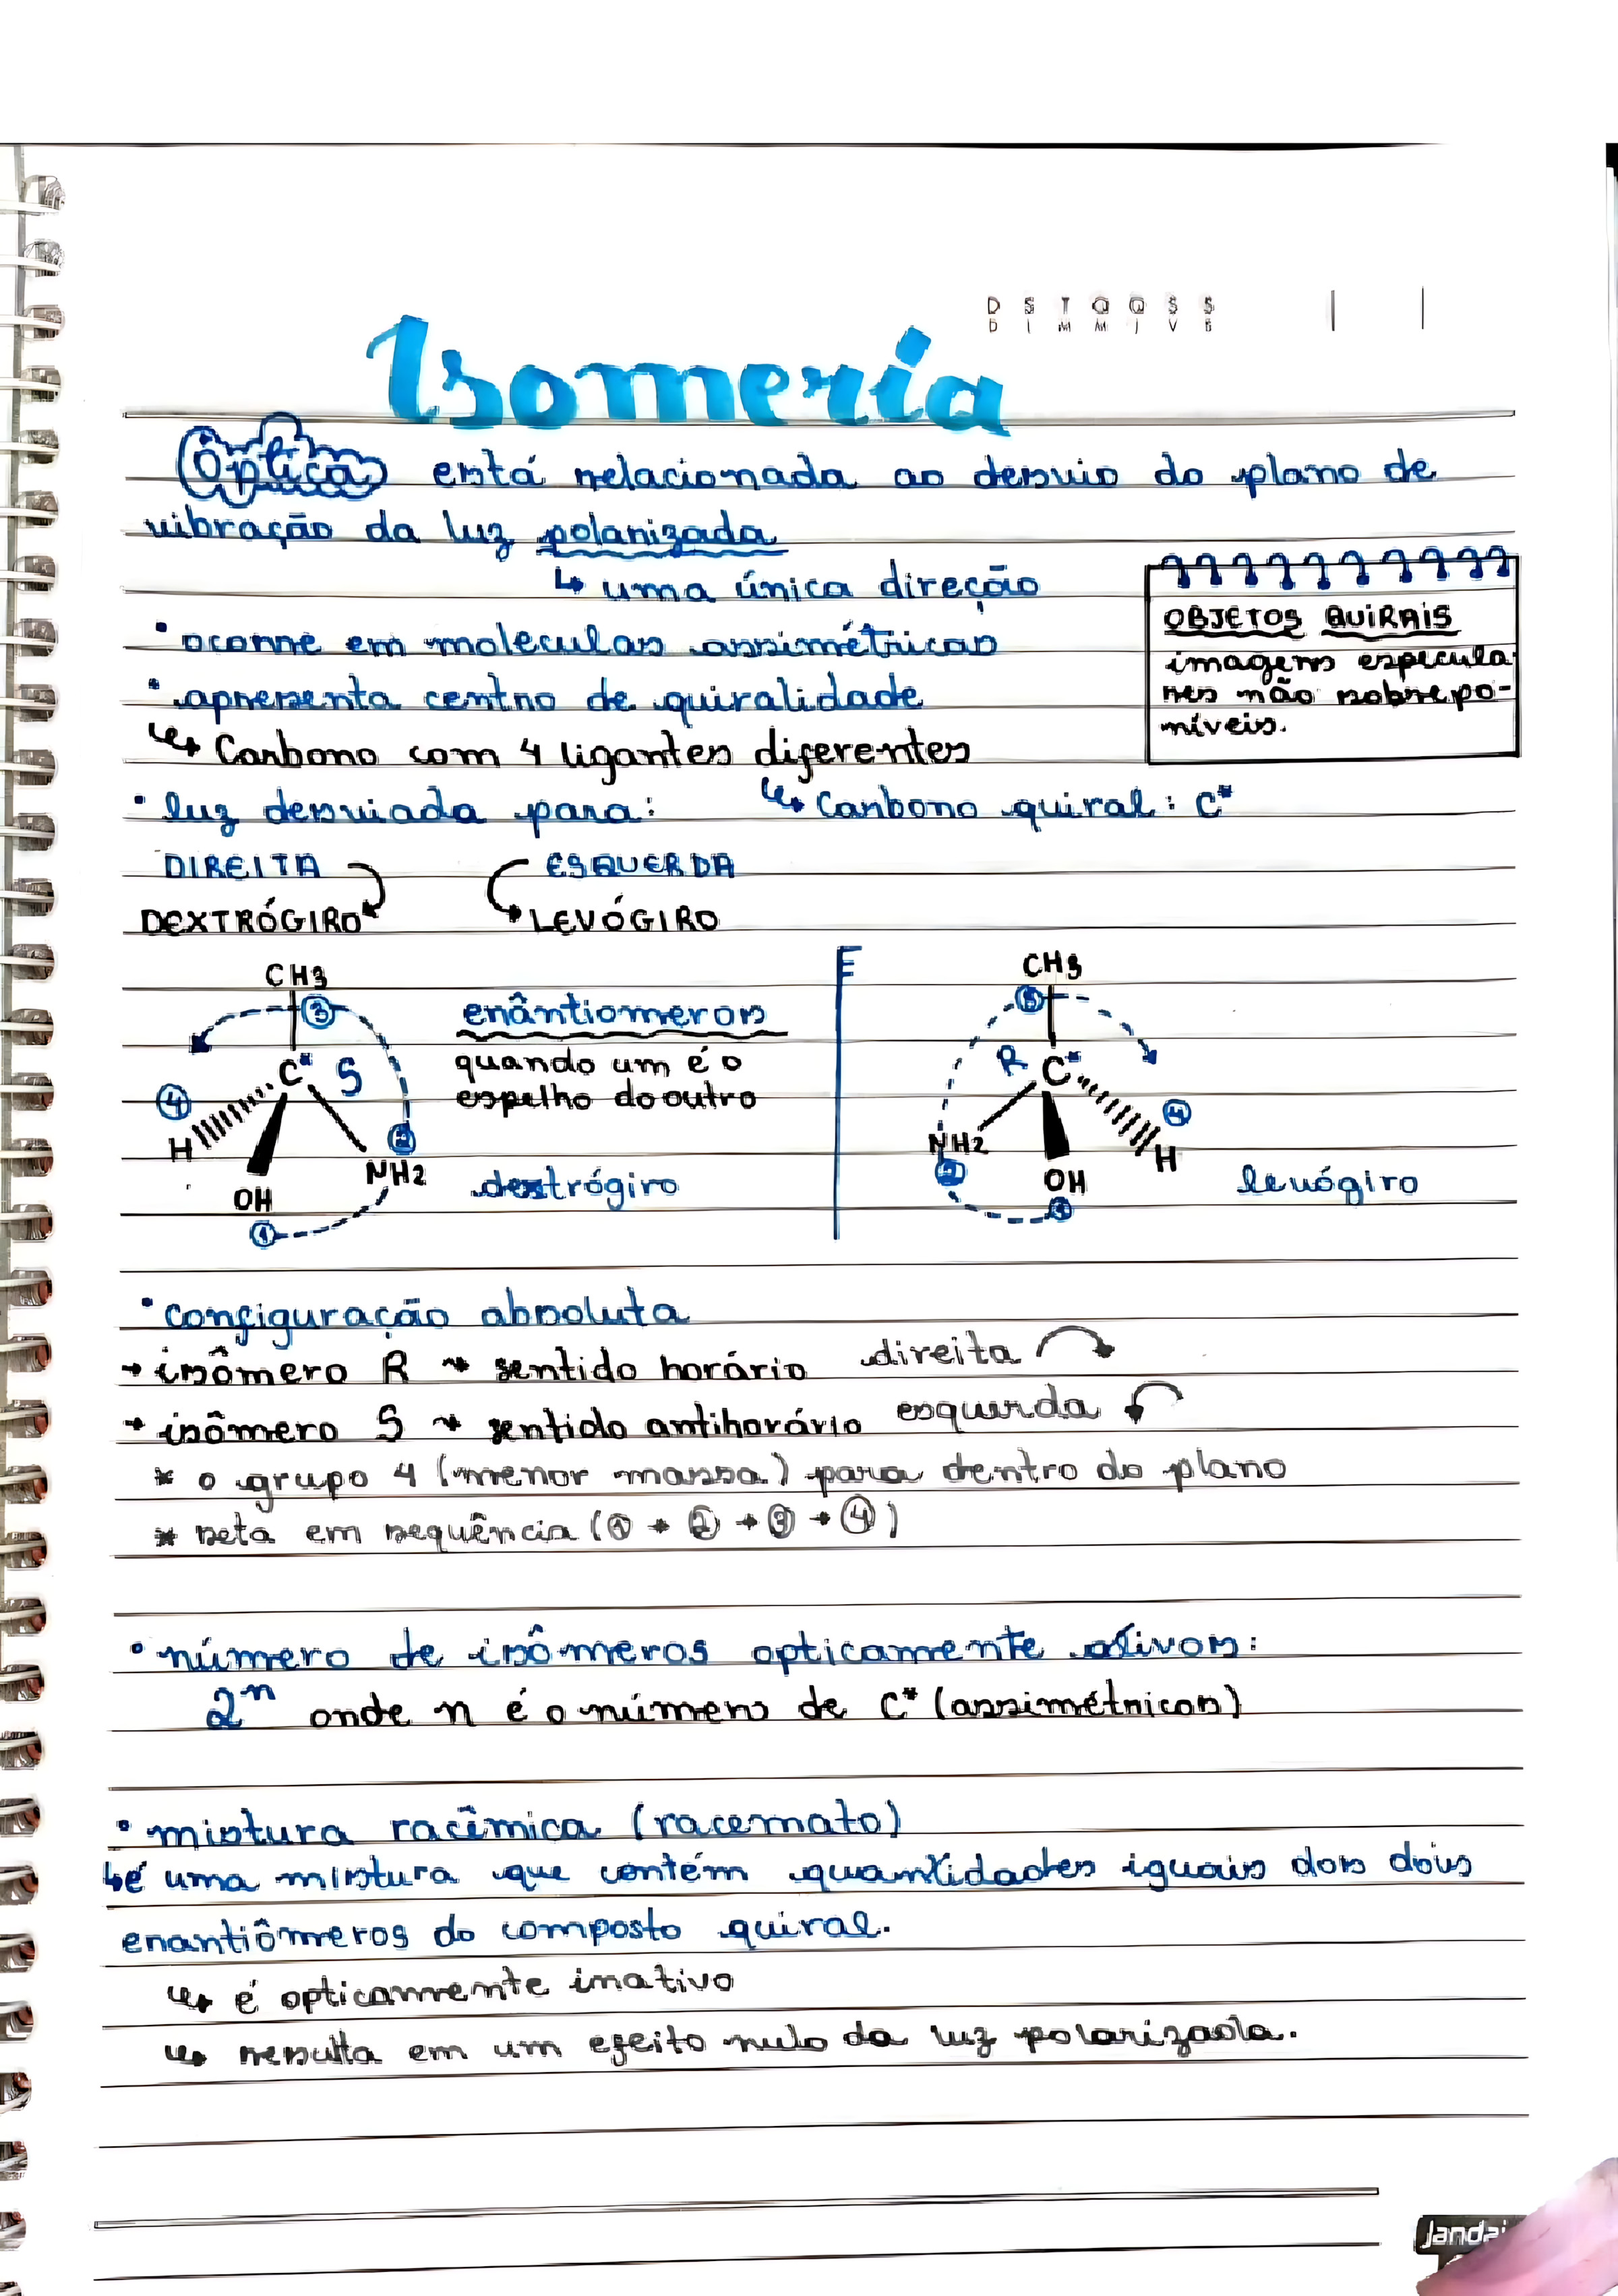 D S T Q Q S S
D L M M J V S
Isomeria
Óptica está relacionada ao desvio do plano de
vibração da luz polarizada
↳ uma única direção
• ocorre em moleculas assimétricas
• apresenta centro de quiralidade
↳ Carbono com 4 ligantes diferentes
OBJETOS QUIRAIS
imagens especula
res não sobrepo-
níveis.
• luz desviada para: ↳ Carbono quiral: C*
DIREITA ESQUERDA
DEXTRÓGIRO LEVÓGIRO
CH3
3
C* S
4
H
2
NH2
OH
1
enântiomeros
quando um é o
espelho do outro
dextrógiro
E
CH3
3
R C*
4
NH2
H
2
OH
1
levógiro
• configuração absoluta
→ isômero R → sentido horário direita
→ isômero S → sentido antihorário esquerda
* o grupo 4 (menor massa) para dentro do plano
* seta em sequência (1 → 2 → 3 → 4)
• número de isômeros opticamente ativos:
2ⁿ onde n é o número de C* (assimétricos)
• mistura racêmica (racemato)
↳ é uma mistura que contém quantidades iguais dos dois
enantiômeros do composto quiral.
↳ é opticamente inativo
↳ resulta em um efeito nulo da luz polarizada.